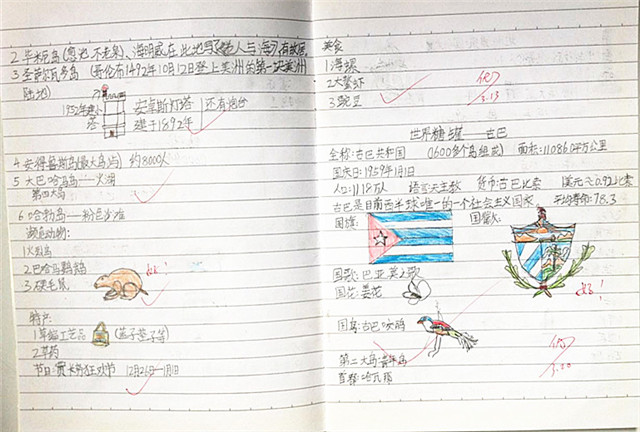 2 毕米尼岛(不老泉)、海明威在此地写了《老人与海》有故居
3 圣萨尔瓦多岛(哥伦布1492年10月12日登上美洲的第一块美洲
陆地)
安卓斯灯塔
建于1892年
还有炮台
4 安得鲁斯岛(最大岛屿) 约8000人
5 大巴哈马岛——
第四大岛
6 哈勃岛——粉色沙滩
濒危动物:
1火烈鸟
2巴哈马鹦鹉
3 硬毛鼠
好!
特产:
1草编工艺品 (篮子垫子等)
2草药
节日:贾卡努狂欢节 12月26日—1月1日
美食
1海螺
2大螯虾
3豌豆
3.13
世界糖罐——古巴
全称:古巴共和国 (1600多个岛组成) 面积:110860平方公里
国庆日:1959年1月1日
人口:1118万 语言 天主教 货币:古巴比索 美元≈0.92比索
古巴是目前西半球唯一的一个社会主义国家 平均寿命:78.3
国旗:
国徽:
国歌:巴亚莫之歌
国花:姜花
好!
国鸟:古巴咬鹃
第二大岛:青年岛
首都:哈瓦那
3.20